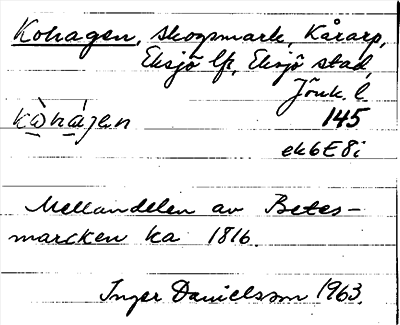 Kohagen, skogsmark, Kårarp,
Eksjö lfs, Eksjö stad,
Jönk. l
kò̲há̲gen 145
ek 6E8i
Mellandelen av Betes-
marcken ka 1816.
Inger Danielsson 1963.